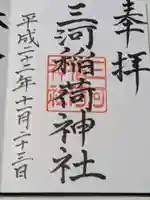 奉拝
三河稲荷神社
平成二十二年十一月二十三日